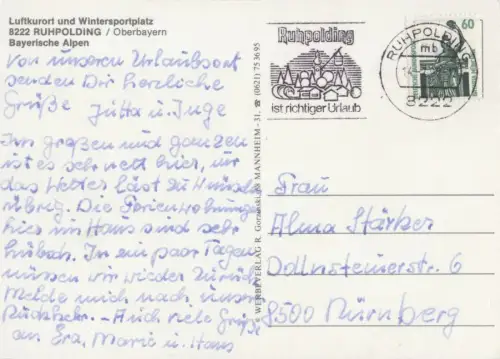 Luftkurort und Wintersportplatz
8222 RUHPOLDING / Oberbayern
Bayerische Alpen
Von unserem Urlaubsort
senden Dir herzliche
Grüße Jutta u. Inge
Im großen und ganzen
ist es sehr nett hier, nur
das Wetter läßt zu wünschen
übrig. Die Ferienwohnungen
hier im Haus sind sehr
hübsch. In ein paar Tagen
müssen wir wieder zurück
Melde mich nach unserer
Rückkehr. – Auch viele Grüße
an Eva, Maria u. Hans
© WERBEVERLAG R. MANNHEIM - 31, ☎ (0621) 75 36 95
Ruhpolding
ist richtiger Urlaub
RUHPOLDING
mb
8222
60
Frau
Alma Stärker
6
8500 Nürnberg